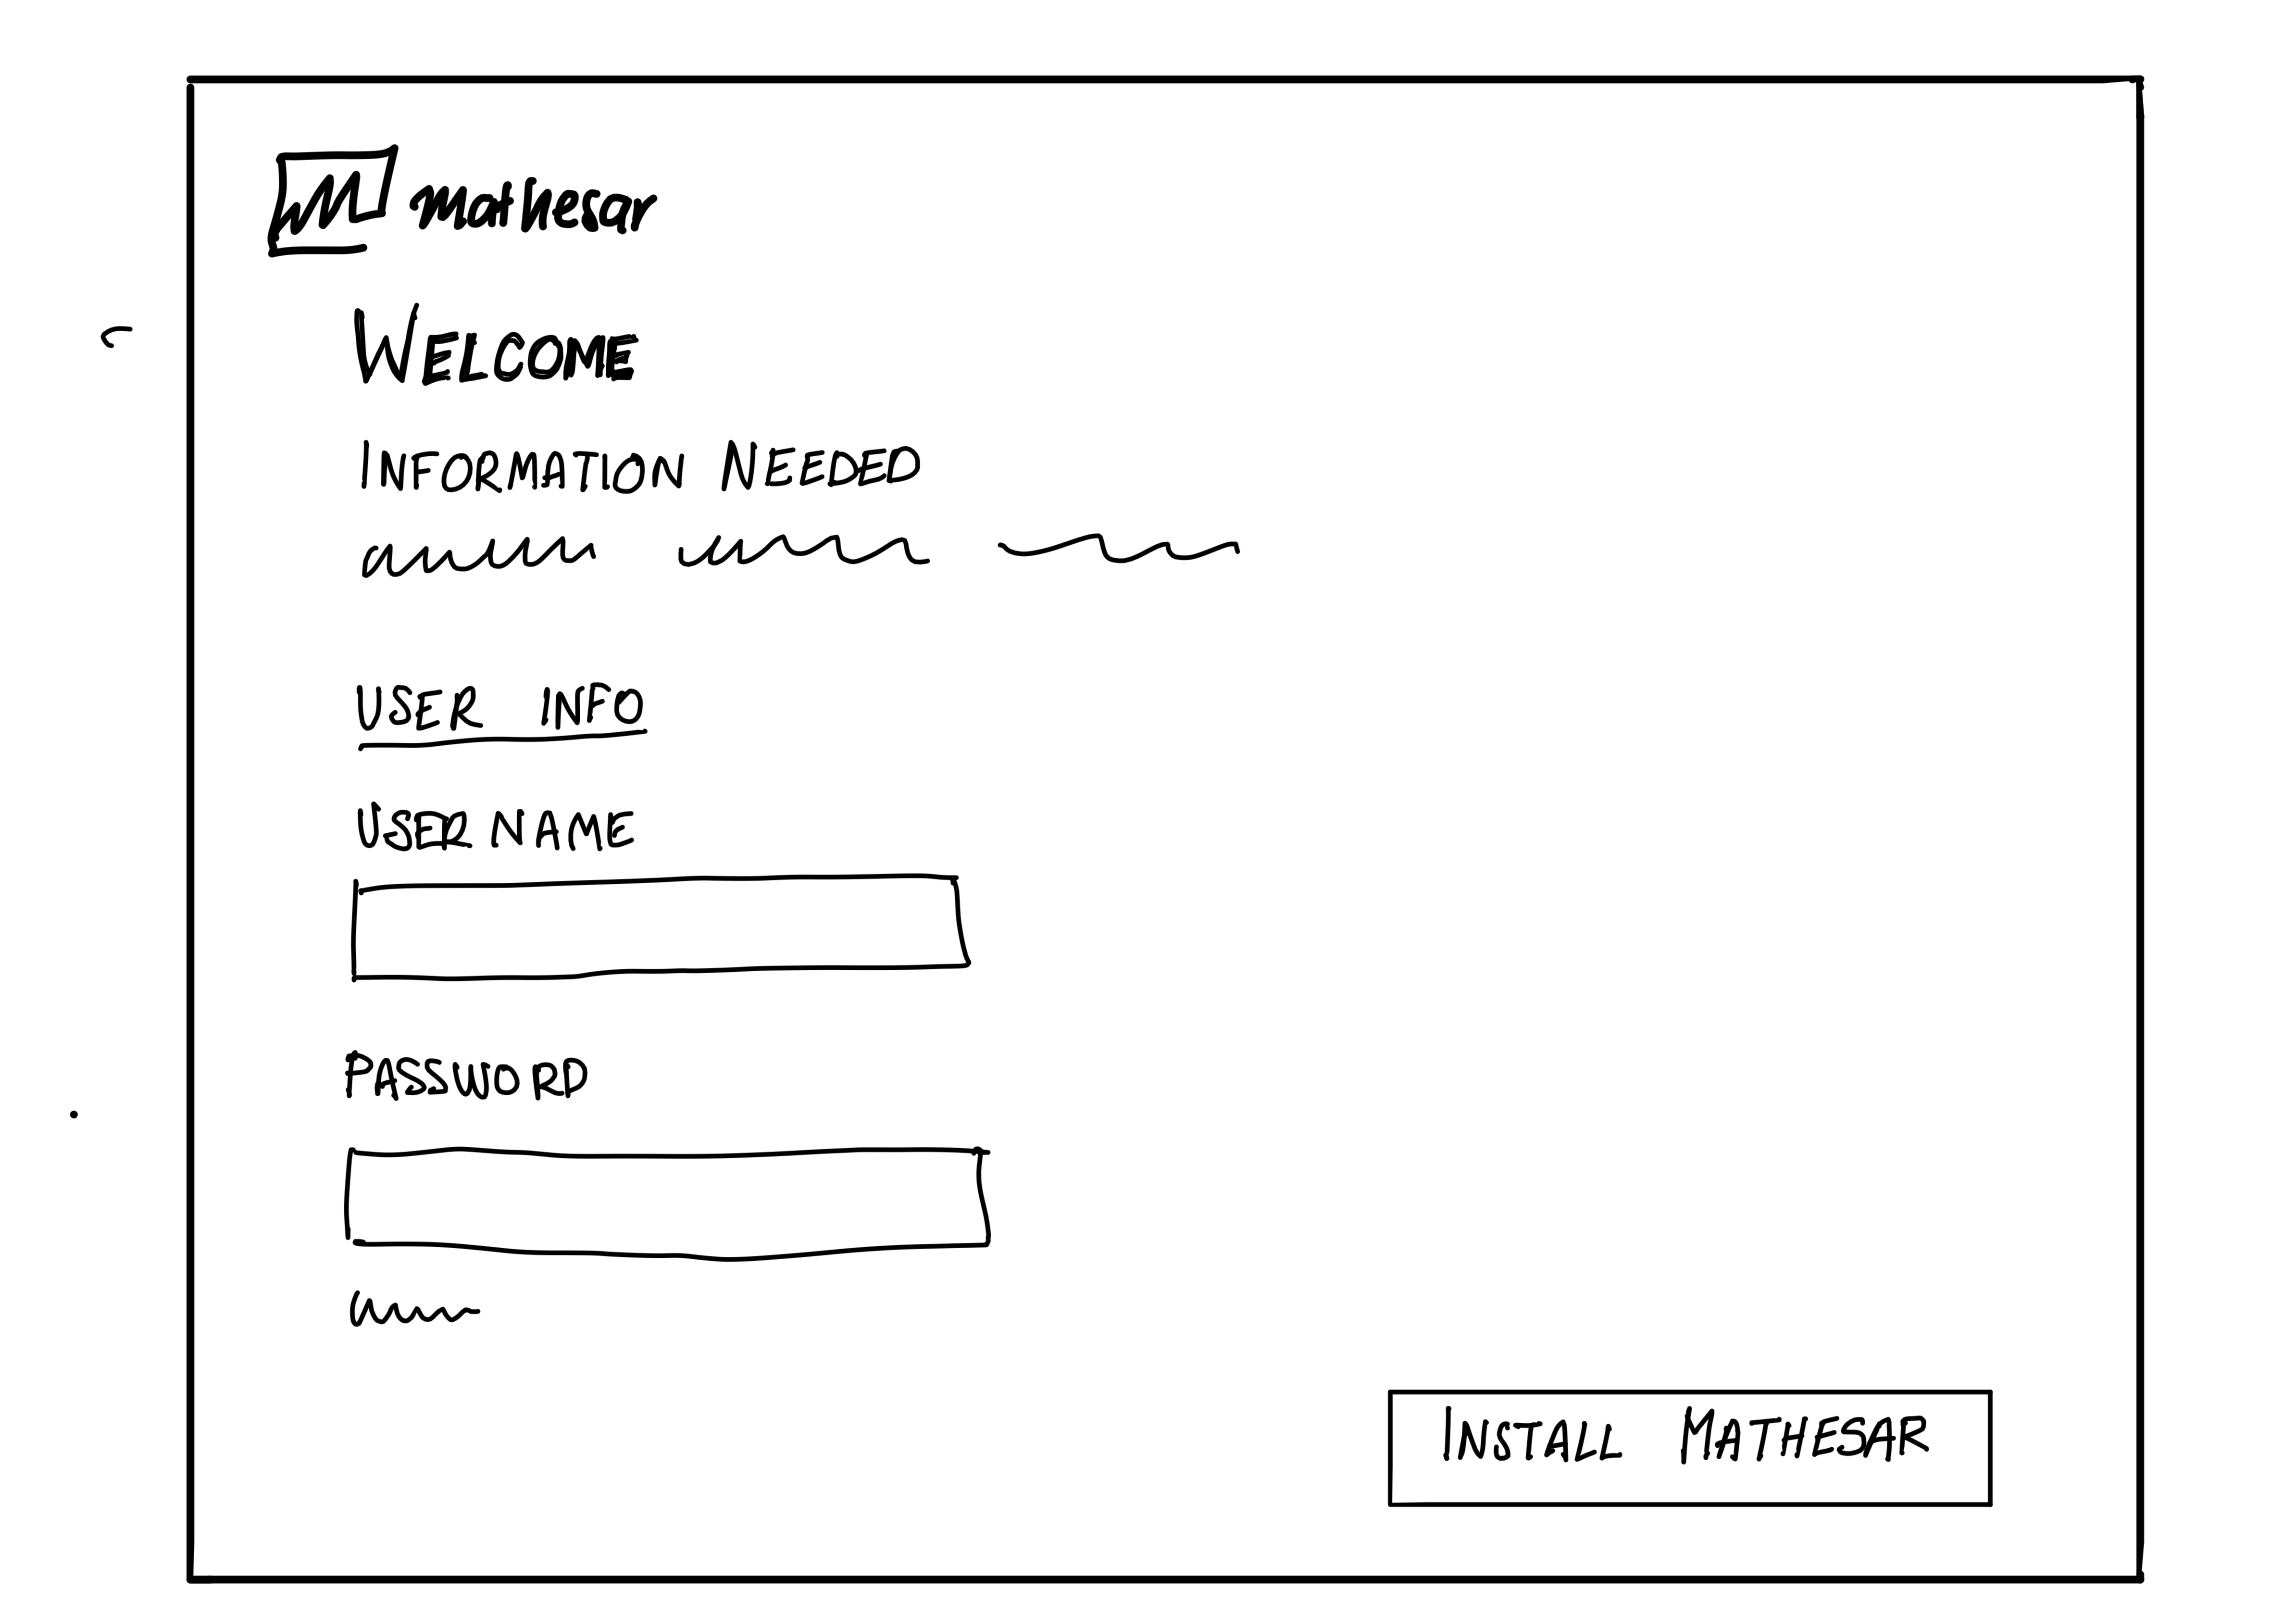 M mathesar
WELCOME
INFORMATION NEEDED
USER INFO
USER NAME
PASSWORD
INSTALL MATHESAR